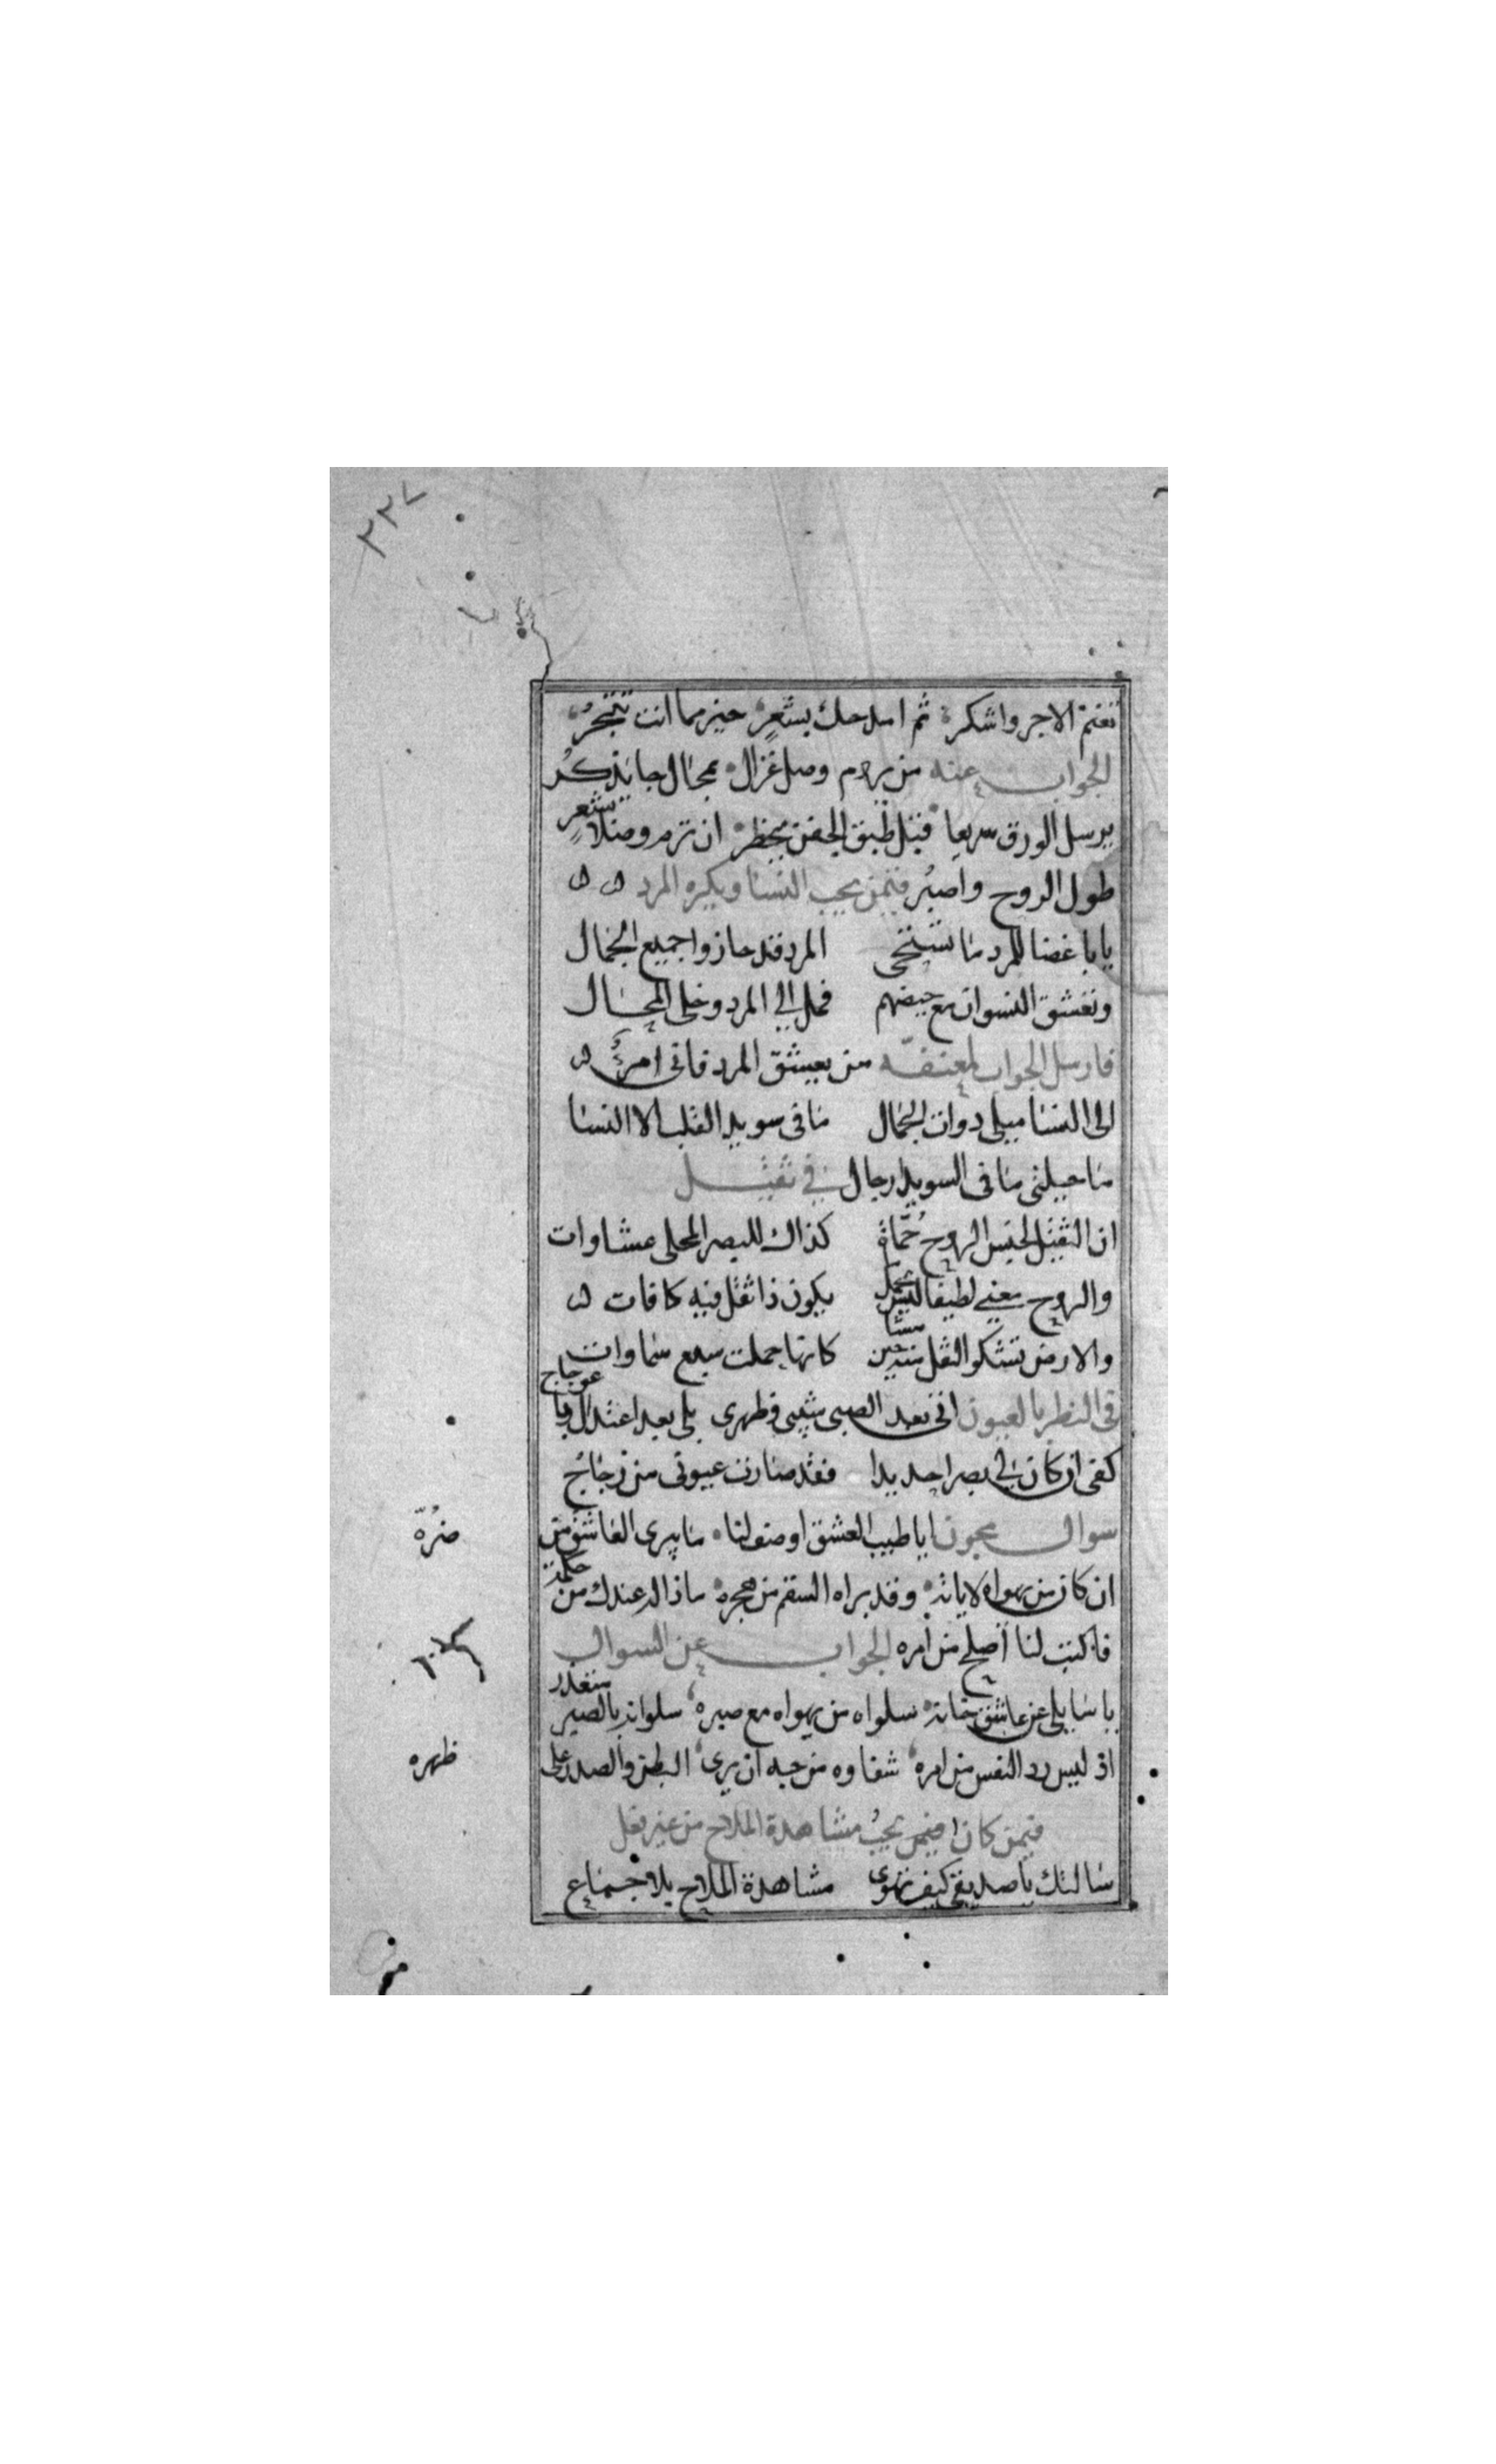 ٣٣٧
تغنم الاجر واشكر ثم امدحك بشعرٍ خير مما انت تتجر
الجواب عنه من يروم وصل غزال بمجال جا يذكر
يرسل الورق سريعا قبل طبق الجفن يخطر ان ترم وصلا بشعرٍ
طول الروح واصبُر فيمن يحب النسا ويكره المرد
يا باغضا للمرد ما تستحى المرد قد حازوا جميع الجمال
وتعشق النسوان مع حيضهم فمل الي المرد وخلى المحال
فارسل الجواب لمعنفه من يعشق المرد فانى امرؤ
الى النسا ميلى دوات الجمال ما فى سويدا القلب الا النسا
ما حيلتى ما فى السويدا رجال في ثقيل
ان الثقيل لحبس الروح حُمّاة كذاك للبصر المحلى عشاوات
والروح معنى لطيفا ليس يحمل يكون ذا ثقل فيه كافات
والارض تشكوا الثقل منه حين مشا كانها حملت سبع سماوات
فى النظر بالعيون اتى بعد الصبى شيبى وظهرى بلى بعد اعتدال وباعوجاج
كفى ان كان لي بصرا حديدا فقد صارت عيونى من زجاج
سوال مجون ايا طبيب العشق اوصف لنا ما يبرى العاشق من
ضرّه
ان كان من يهواه لا ياته وقد براه السقم من هجره ماذا لد عندك من حكمة
فاكتب لنا أصلح من أمره الجواب عن السوال
يا سايلى عن عاشق خانه سلواه من يهواه مع صبره سلوانه بالصبر متعذر
اذ ليس رد النفس من امره شفاوه من حبه ان يرى البطن والصدر على
ظهره
فيمن كان يحب مشاهدة الملاح من غير فعل
سالتك يا صديقى كيف تهوى مشاهدة الملاح بلا جماع